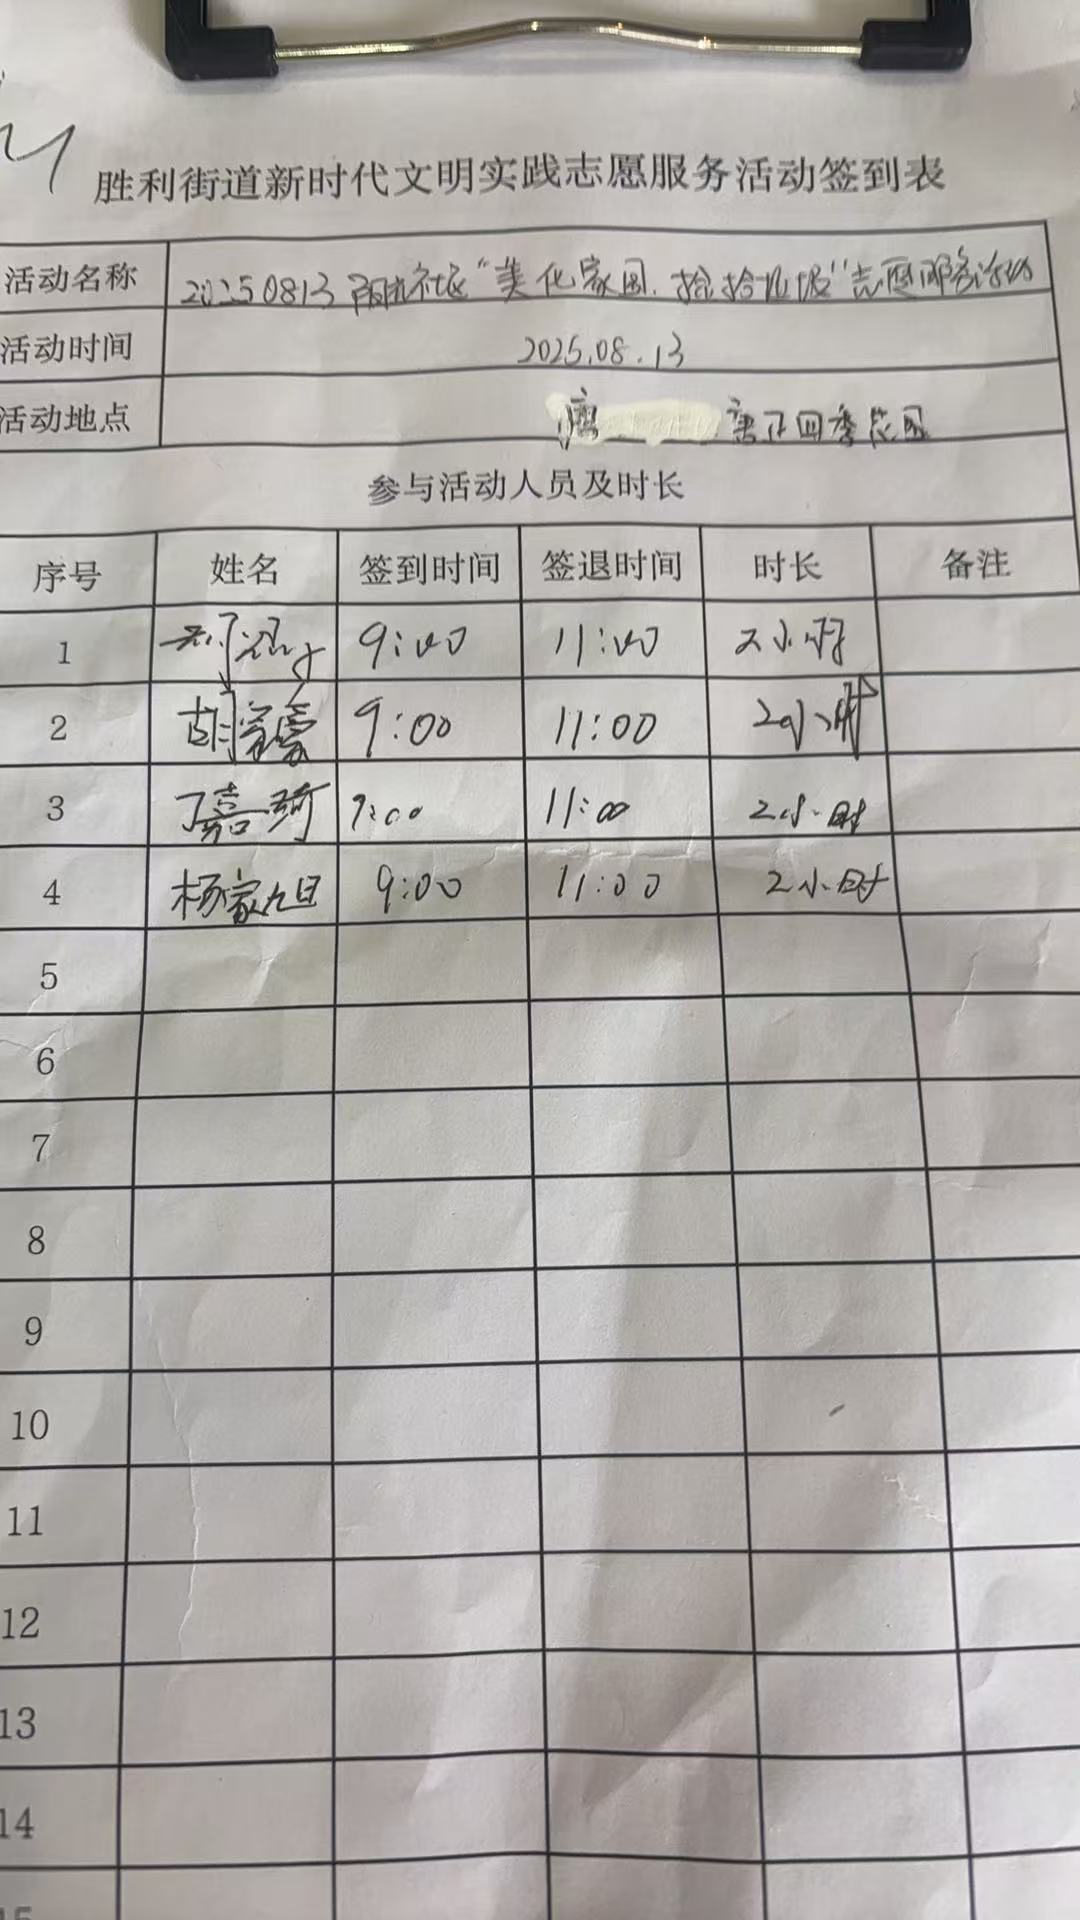 胜利街道新时代文明实践志愿服务活动签到表
活动名称 20250813 社区“美化家园.捡拾垃圾”志愿服务活动
活动时间 2025.08.13
活动地点 唐正四季花园
参与活动人员及时长
序号 姓名 签到时间 签退时间 时长 备注
1 9:00 11:00 2小时
2 胡家豪 9:00 11:00 2小时
3 丁嘉琦 9:00 11:00 2小时
4 杨家旭 9:00 11:00 2小时
5
6
7
8
9
10
11
12
13
14
15